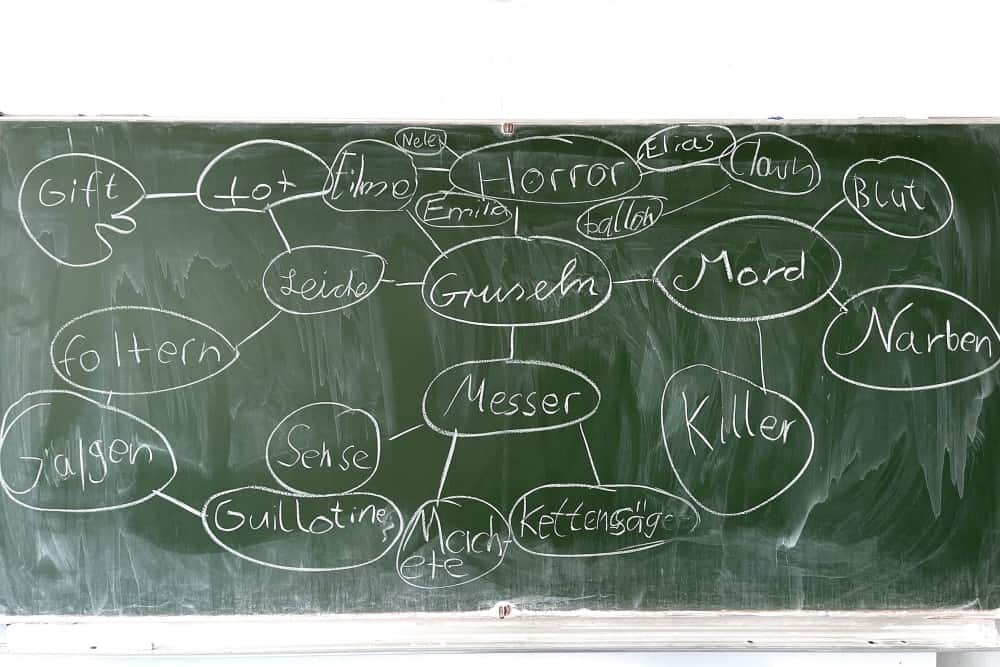 Nele
Horror
Elias
Clown
Gift
tot
Filme
Emilia
ballon
Blut
Leiche
Gruseln
Mord
foltern
Narben
Messer
Killer
Galgen
Sense
Guillotine
Mach-
ete
Kettensäge